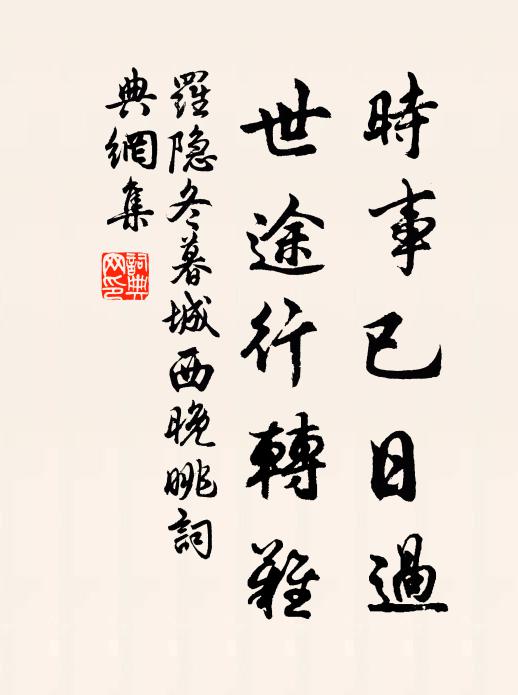 時事已日過
世途行轉難
羅隐冬暮城西晚眺詞
典網集
詞典网印